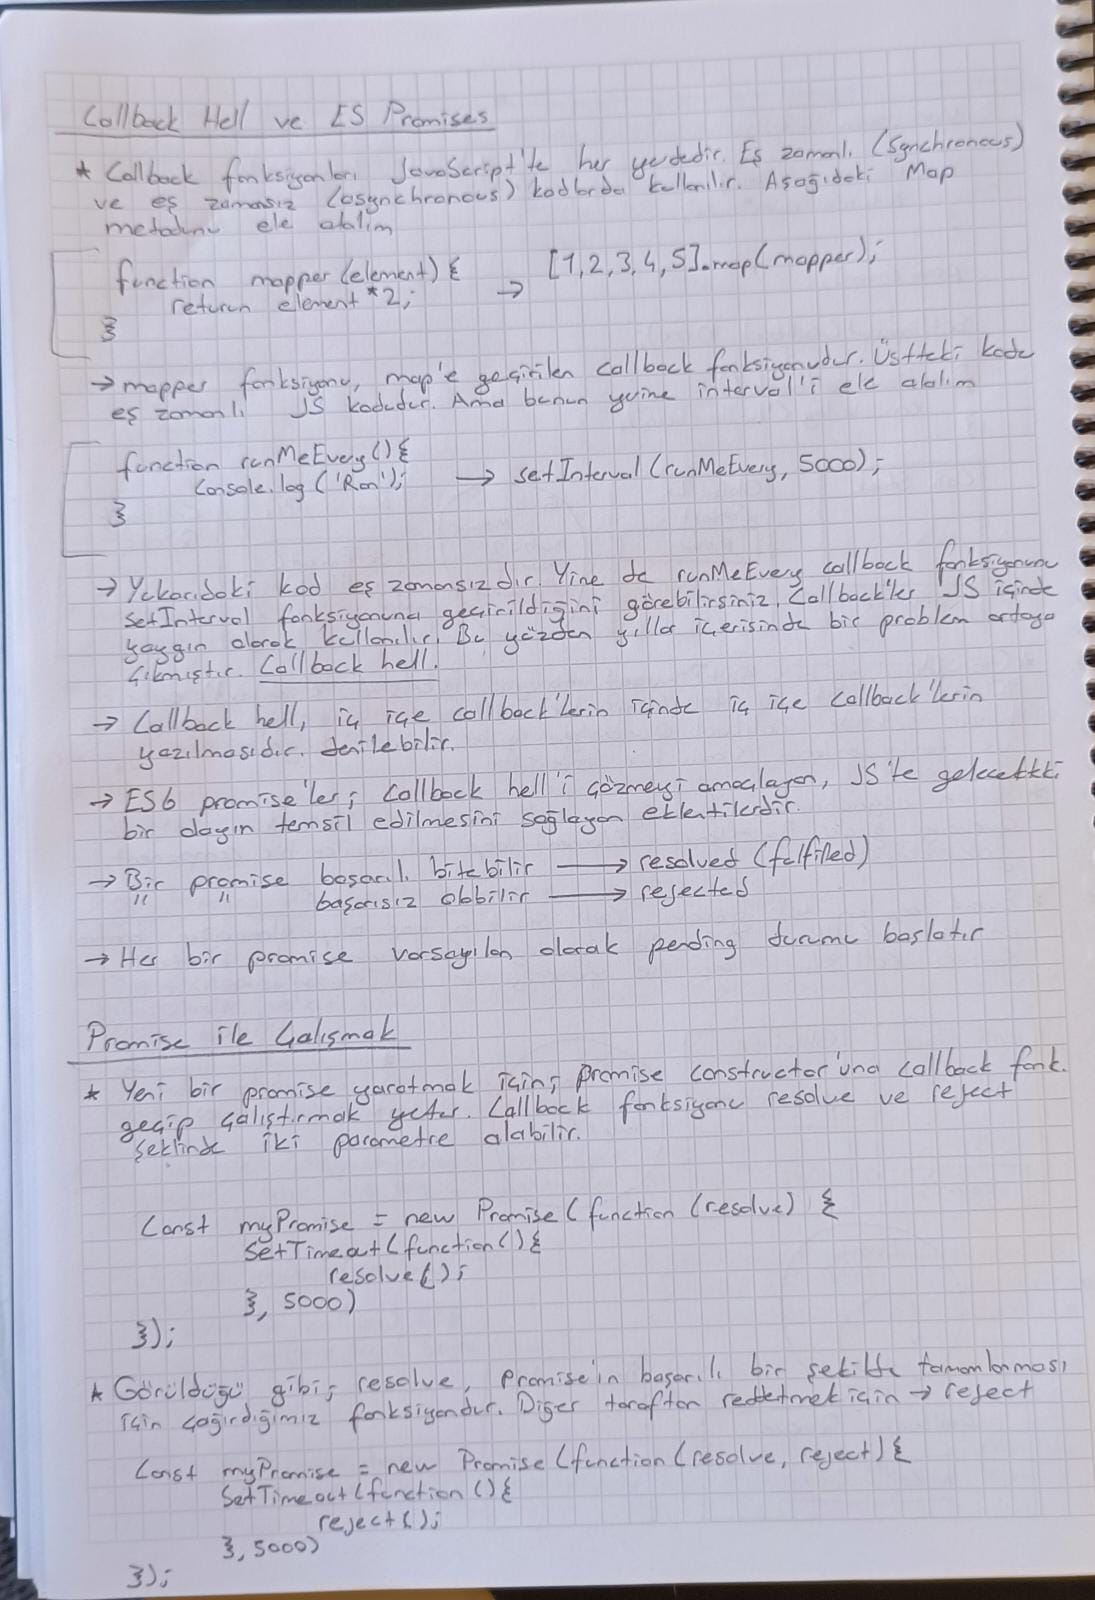 Callback Hell ve ES Promises
* Callback fonksiyonları JavaScript'te her yerdedir. Eş zamanlı (Synchronous)
ve eş zamansız (asynchronous) kodlarda kullanılır. Aşağıdaki Map
metodunu ele alalım
function mapper (element) { → [1,2,3,4,5].map(mapper);
return element *2;
}
→ mapper fonksiyonu, map'e geçirilen callback fonksiyonudur. Üstteki kodu
eş zamanlı JS kodudur. Ama bunun yerine interval'i ele alalım
function runMeEvery () {
console.log ('Ran'); → setInterval (runMeEvery, 5000);
}
→ Yukarıdaki kod eş zamansızdır. Yine de runMeEvery callback fonksiyonunu
setInterval fonksiyonuna geçirildiğini görebilirsiniz. Callback'ler JS içinde
yaygın olarak kullanılır. Bu yüzden yıllar içerisinde bir problem ortaya
çıkmıştır. Callback hell.
→ Callback hell, iç içe callback'lerin içinde iç içe callback'lerin
yazılmasıdır. denilebilir.
→ ES6 promise'ler; callback hell'i çözmeyi amaçlayan, JS'te gelecekteki
bir olayın temsil edilmesini sağlayan eklentilerdir.
→ Bir promise başarılı bitebilir → resolved (fulfilled)
" " başarısız olabilir → rejected
→ Her bir promise varsayılan olarak pending durumu başlatır
Promise ile Çalışmak
* Yeni bir promise yaratmak için; promise constructor'una callback fonk.
geçip çalıştırmak yeter. Callback fonksiyonu resolve ve reject
şeklinde iki parametre alabilir.
Const myPromise = new Promise (function (resolve) {
SetTimeout (function () {
resolve ();
}, 5000)
});
* Görüldüğü gibi; resolve, Promise'in başarılı bir şekilde tamamlanması
için çağırdığımız fonksiyondur. Diğer taraftan reddetmek için → reject
Const myPromise = new Promise (function (resolve, reject) {
SetTimeout (function () {
reject ();
}, 5000)
});